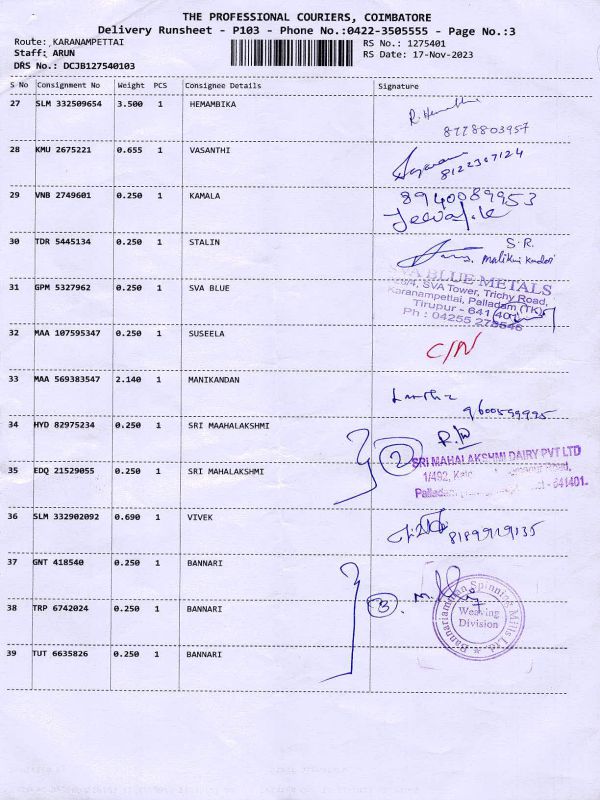 THE PROFESSIONAL COURIERS, COIMBATORE
Delivery Runsheet - P103 - Phone No.:0422-3505555 - Page No.:3
Route: KARANAMPETTAI RS No.: 1275401
Staff: ARUN RS Date: 17-Nov-2023
DRS No.: DCJB127540103
S No Consignment No Weight PCS Consignee Details Signature
27 SLM 332509654 3.500 1 HEMAMBIKA
8778803957
28 KMU 2675221 0.655 1 VASANTHI
8122307124
29 VNB 2749601 0.250 1 KAMALA 8940089953
30 TDR 5445134 0.250 1 STALIN S.R.
31 GPM 5327962 0.250 1 SVA BLUE SVA BLUE METALS
SVA Tower, Trichy Road,
Karanampettai, Palladam (TK)
Tirupur - 641 401
Ph : 04255
32 MAA 107595347 0.250 1 SUSEELA C/N
33 MAA 569383547 2.140 1 MANIKANDAN
9600599995
34 HYD 82975234 0.250 1 SRI MAAHALAKSHMI 2
35 EDQ 21529055 0.250 1 SRI MAHALAKSHMI SRI MAHALAKSHMI DAIRY PVT LTD
1/492,
Palladam - 641401.
36 SLM 332902092 0.690 1 VIVEK
8189929135
37 GNT 418540 0.250 1 BANNARI
38 TRP 6742024 0.250 1 BANNARI 3
Bannariamman Spinning Mills Ltd.
Weaving
Division
39 TUT 6635826 0.250 1 BANNARI